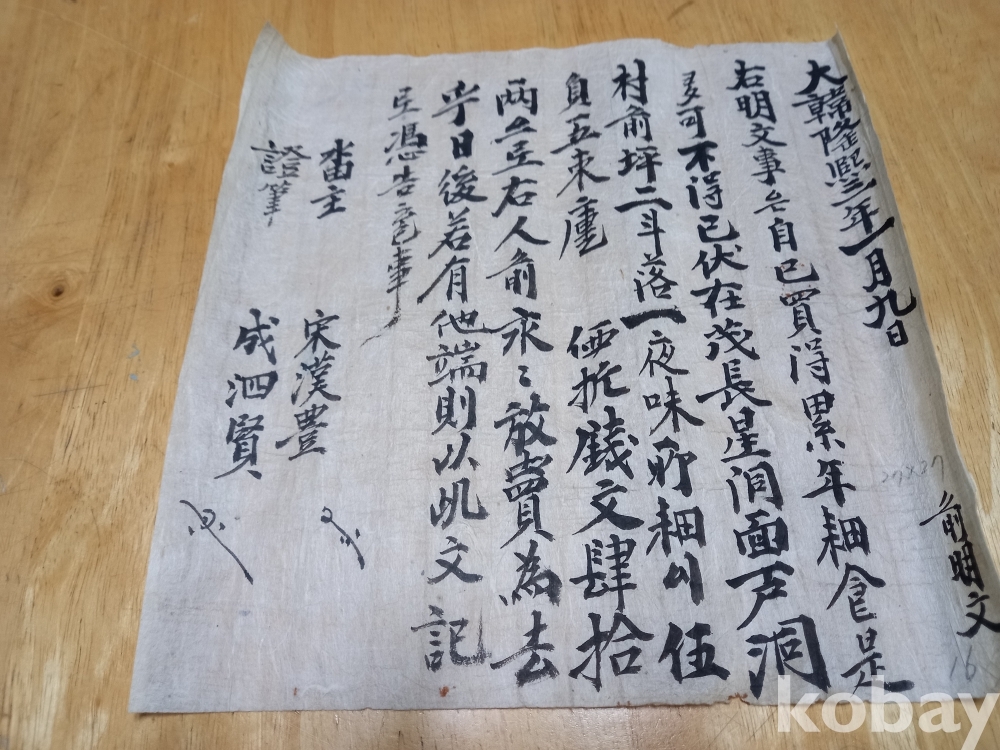 大韓隆熙三年一月九日 前明文
右明文事段自己買得累年耕食是
多可不得已伏在茂長星洞面芦洞
村前坪二斗落一夜味所耕川伍
負五束庫 価折錢文肆拾
両以右人前永〻放賣為去
乎日後若有他端則以此文記
憑告官事
畓主 宋漢豊
證筆 成泗賢
27×37
16
kobay